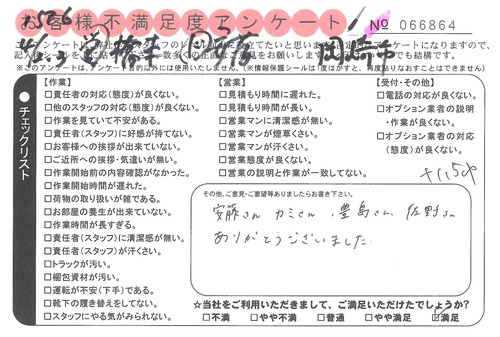 お客様不満足度アンケート
No 066864
岡崎市
※このアンケートは、アンケート目的以外には使用いたしません。(※情報保護シールは1度はがすと、再度貼りなおすことはできません)
チェックリスト
【作業】
□責任者の対応(態度)が良くない。
□他のスタッフの対応(態度)が良くない。
□作業を見ていて不安がある。
□責任者(スタッフ)に好感が持てない。
□お客様への挨拶が出来ていない。
□ご近所への挨拶・気遣いが無い。
□作業開始前の内容確認がなかった。
□作業開始時間が遅れた。
□荷物の取り扱いが雑である。
□お部屋の養生が出来ていない。
□作業時間が長すぎる。
□責任者(スタッフ)に清潔感が無い。
□責任者(スタッフ)が汗くさい。
□トラックが汚い。
□梱包資材が汚い。
□運転が不安(下手)である。
□靴下の履き替えをしてない。
□スタッフにやる気がみられない。
【営業】
□見積もり時間に遅れた。
□見積もり時間が長い。
□営業マンに清潔感が無い。
□営業マンが煙草くさい。
□営業マンが汗くさい。
□営業態度が良くない。
□営業の説明と作業が一致してない。
【受付・その他】
□電話の対応が良くない。
□オプション業者の説明
・作業が良くない。
□オプション業者の対応
(態度)が良くない。
その他、ご意見・ご要望等ありましたらお書き下さい。
安藤さん カミさん、豊島さん、佐野さん
ありがとうございました
☆当社をご利用いただきまして、ご満足いただけたでしょうか?
□不満 □やや不満 □普通 □やや満足 ☑満足